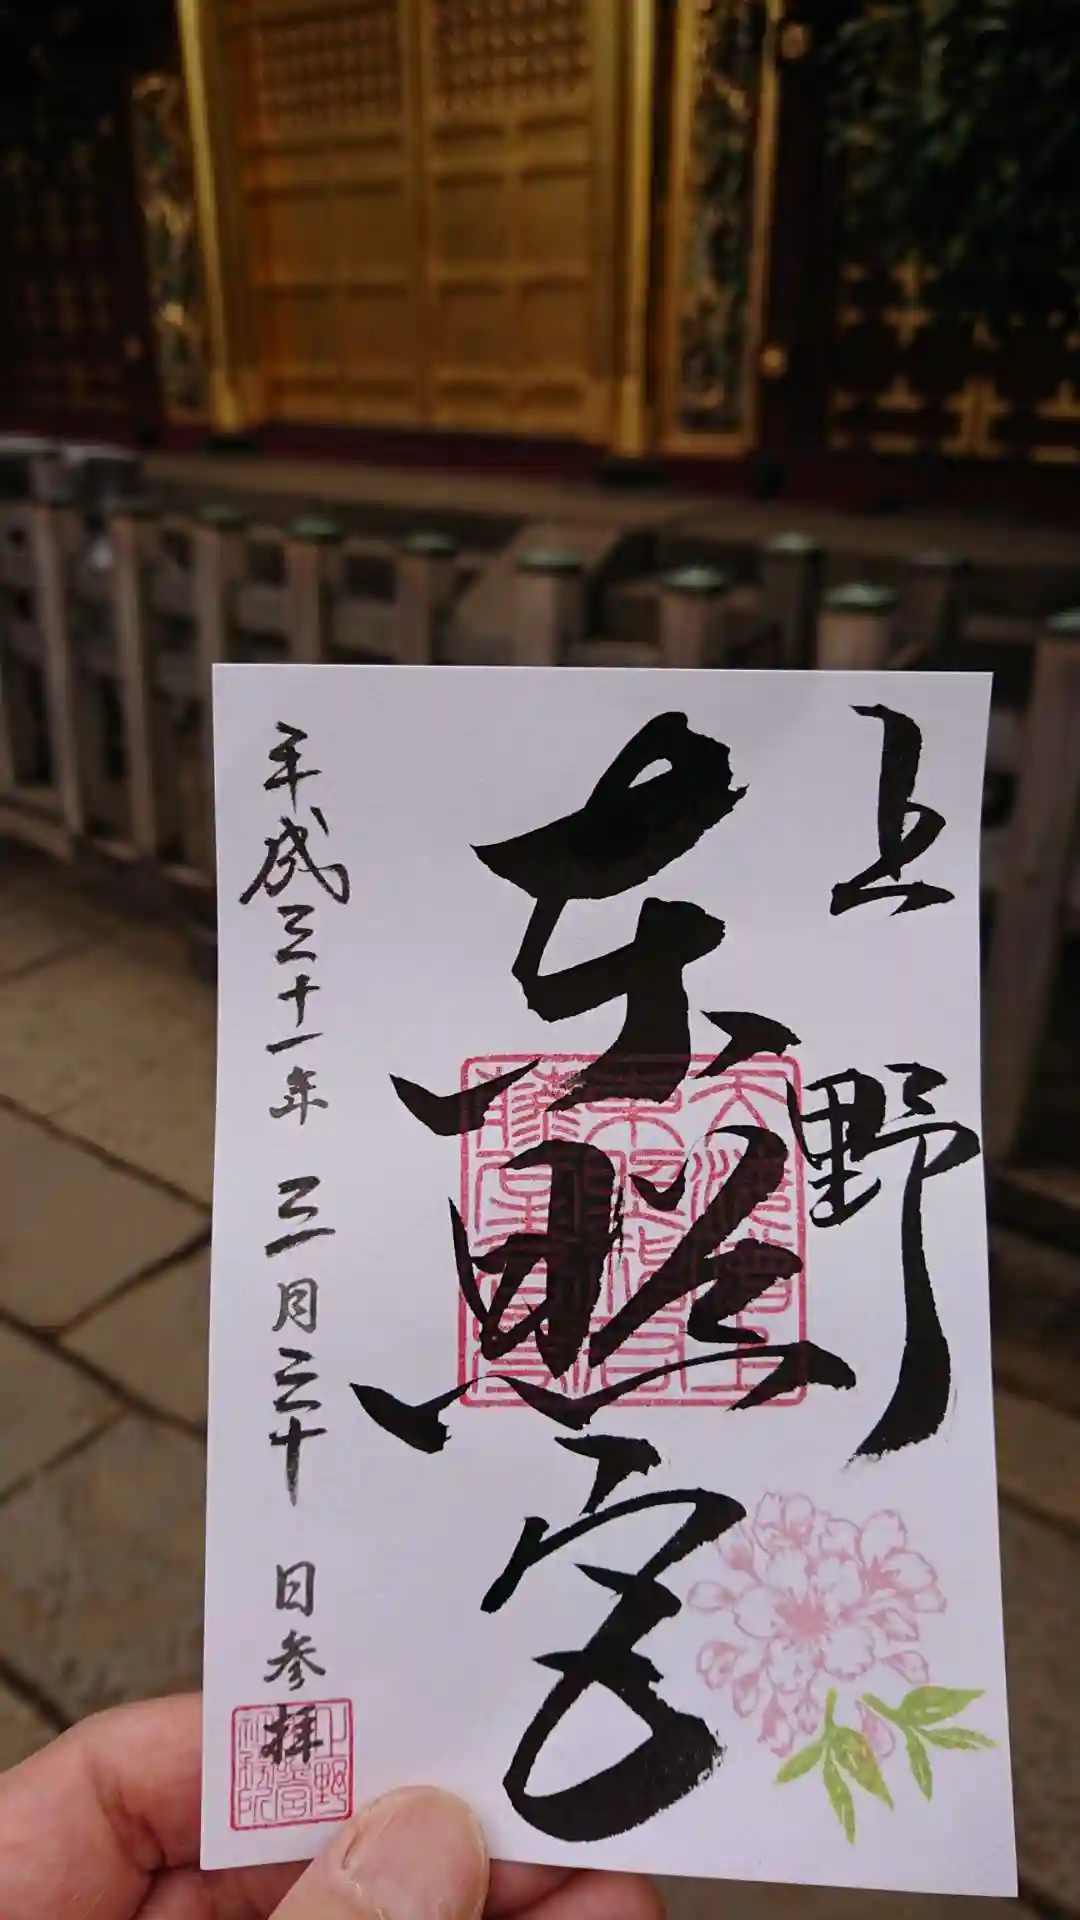 上野
東照宮
平成三十一年 三月三十日参拝